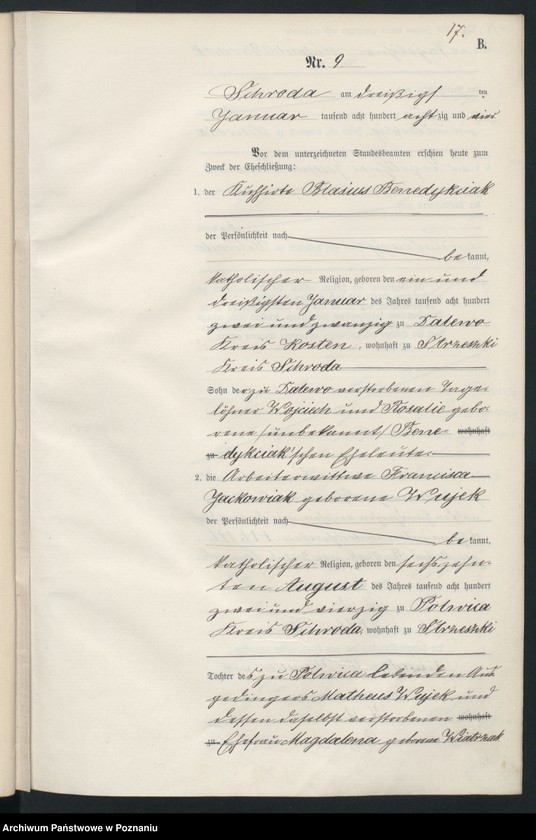 17.
B.
Nr. 9
Schroda am dreißigst ten
Januar tausend acht hundert achtzig und vier
Vor dem unterzeichneten Standesbeamten erschien heute zum
Zweck der Eheschließung:
1. der Kuhhirte Blasius Benedykciak
der Persönlichkeit nach
be kannt,
katholischer Religion, geboren den ein und
dreißigsten Januar des Jahres tausend acht hundert
zwei und zwanzig zu Dalewo
Kreis Kosten, wohnhaft zu Strzeszki
Kreis Schroda
Sohn der zu Dalewo verstorbenen Tage-
löhner Wojciech und Rosalie gebo-
rene /unbekannt/ Bene- wohnhaft
zu dykciak'schen Eheleute
2. die Arbeiterwittwe Francisca
Jackowiak geborene Wujek
der Persönlichkeit nach
be kannt,
katholischer Religion, geboren den sechszehn-
ten August des Jahres tausend acht hundert
zwei und vierzig zu Polwica
Kreis Schroda, wohnhaft zu Strzeszki
Tochter des zu Polwica lebenden Aus-
gedingers Matheus Wujek und
dessen daselbst verstorbenen wohnhaft
zu Ehefrau Magdalena geborene
Archiwum Państwowe w Poznaniu